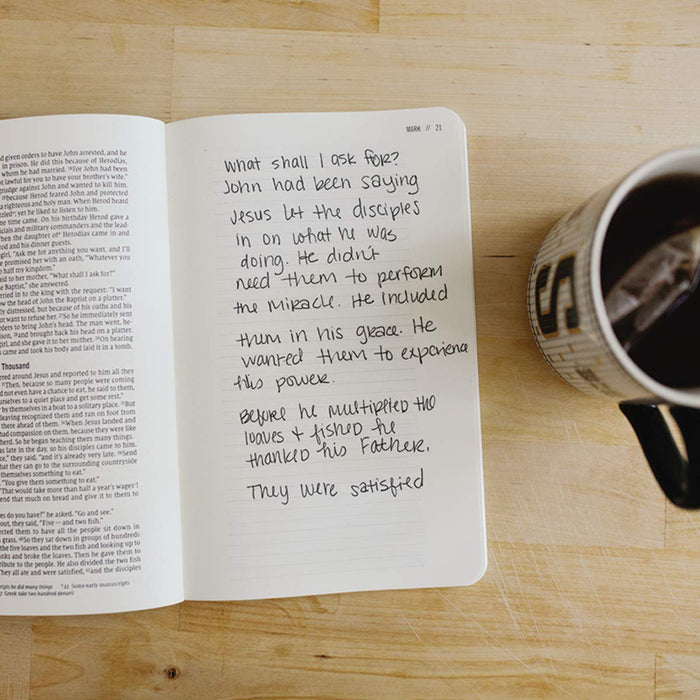 d given orders to have John arrested, and he
in prison. He did this because of Herodias,
whom he had married. ¹⁸For John had been
t lawful for you to have your brother's wife."
grudge against John and wanted to kill him,
²⁰because Herod feared John and protected
a righteous and holy man. When Herod heard
zzled; yet he liked to listen to him.
ne time came. On his birthday Herod gave a
cials and military commanders and the lead
When the daughter of Herodias came in and
nd his dinner guests.
girl, "Ask me for anything you want, and I'll
e promised her with an oath, "Whatever you
o half my kingdom."
aid to her mother, "What shall I ask for?"
e Baptist," she answered.
rried in to the king with the request: "I want
w the head of John the Baptist on a platter."
ly distressed, but because of his oaths and his
ot want to refuse her. ²⁷So he immediately sent
orders to bring John's head. The man went, be-
rison, ²⁸and brought back his head on a platter.
girl, and she gave it to her mother. ²⁹On hearing
s came and took his body and laid it in a tomb.
Thousand
ered around Jesus and reported to him all they
³¹Then, because so many people were coming
d not even have a chance to eat, he said to them,
urselves to a quiet place and get some rest."
by themselves in a boat to a solitary place. ³³But
leaving recognized them and ran on foot from
there ahead of them. ³⁴When Jesus landed and
had compassion on them, because they were like
herd. So he began teaching them many things.
as late in the day, so his disciples came to him.
ce," they said, "and it's already very late. ³⁶Send
hat they can go to the surrounding countryside
themselves something to eat."
"You give them something to eat."
"That would take more than half a year's wages!
end that much on bread and give it to them to
es do you have?" he asked. "Go and see."
out, they said, "Five — and two fish."
ected them to have all the people sit down in
grass. ⁴⁰So they sat down in groups of hundreds
the five loaves and the two fish and looking up to
anks and broke the loaves. Then he gave them to
tribute to the people. He also divided the two fish
They all ate and were satisfied, ⁴³and the disciples
ripts he did many things ᵇ22 Some early manuscripts
7 Greek take two hundred denarii
MARK // 21
What shall I ask for?
John had been saying
Jesus let the disciples
in on what he was
doing. He didn't
need them to perform
the miracle. He included
them in his grace. He
wanted them to experience
his power.
Before he multiplied the
loaves + fished he
thanked his Father.
They were satisfied
S